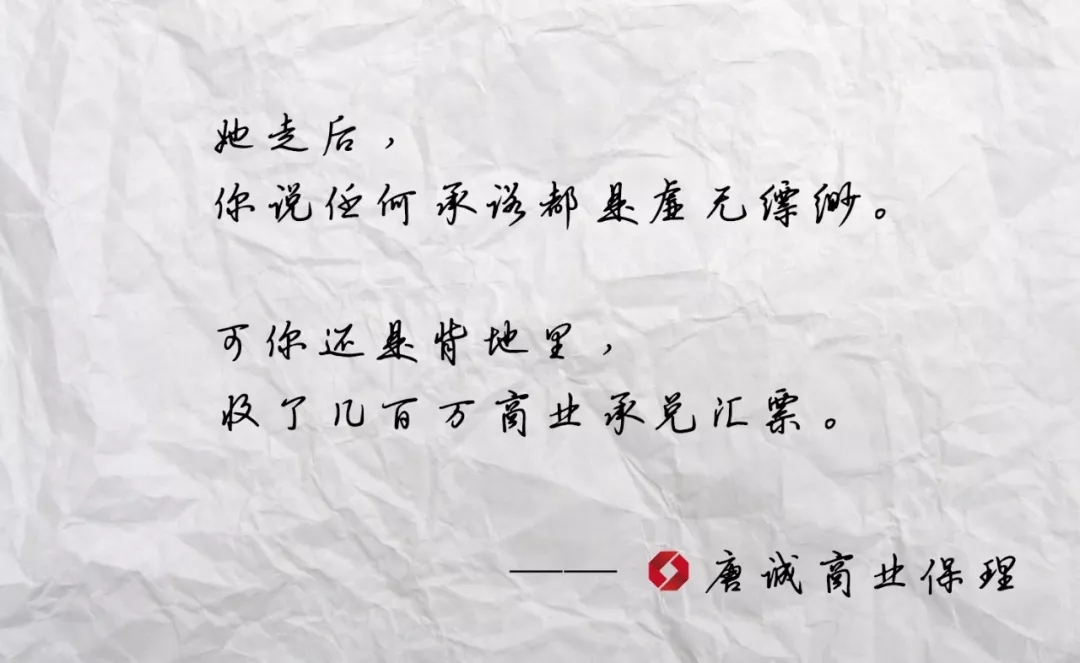 她走后，
你说任何承诺都是虚无缥缈。
可你还是背地里，
收了几百万商业承兑汇票。
—— 唐诚商业保理